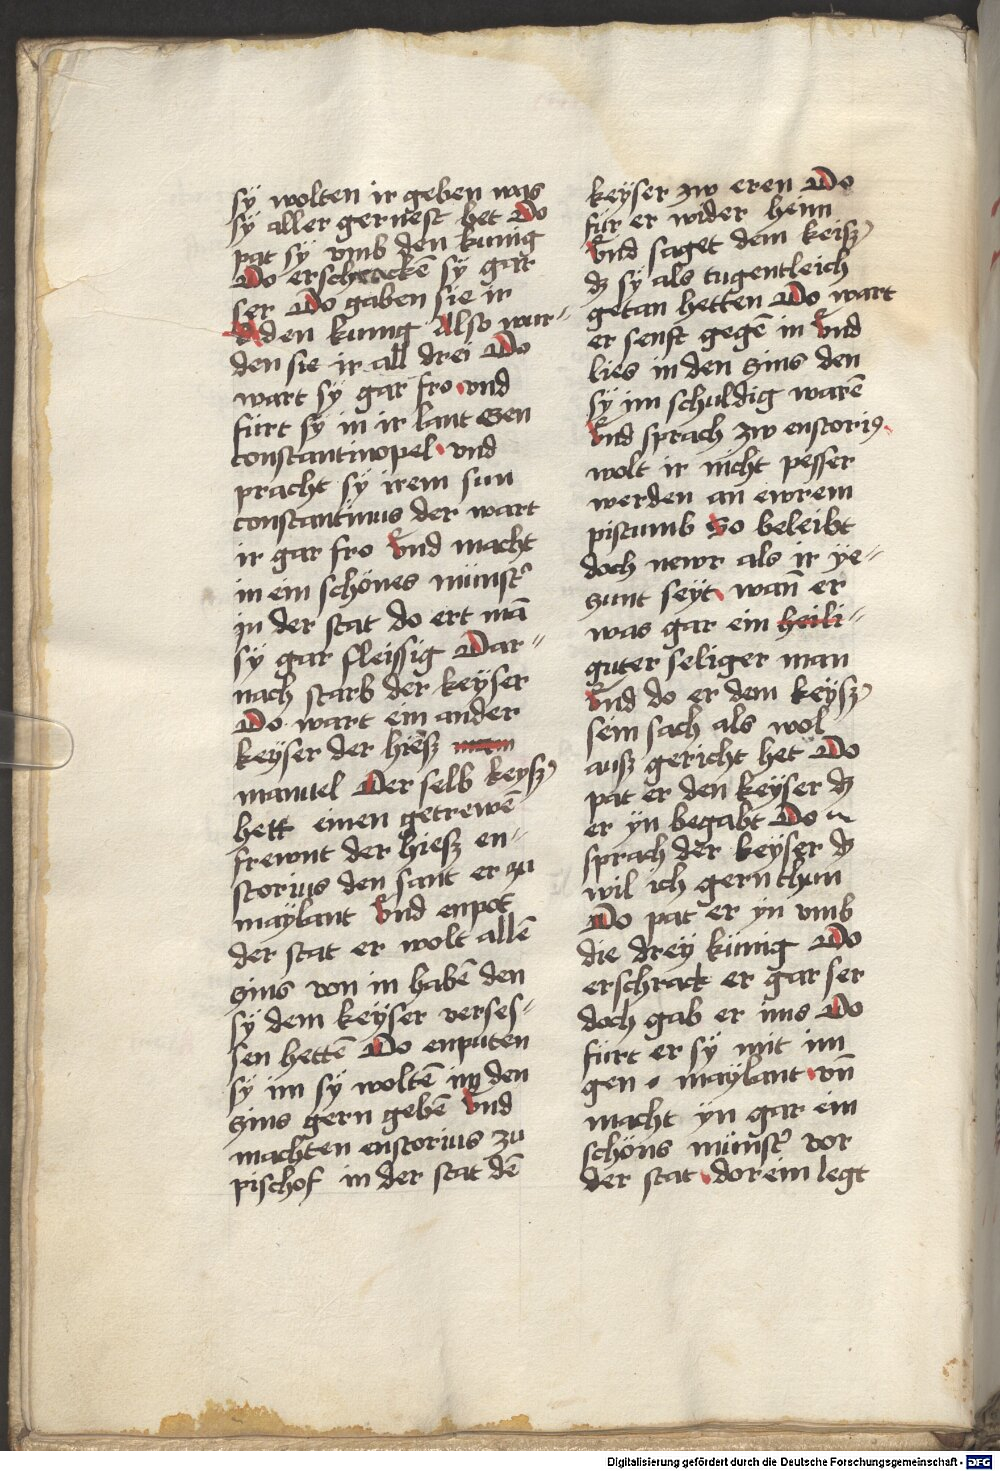 sÿ wolten ir geben was
sÿ aller gernest het Do
pat sÿ vmb den kunig
Do erschracken̄ sÿ gar
ser Do gaben sie ir
den kunig Also wur⸗
den sie ir all drei Do
wart sÿ gar fro vnd
fürt sÿ in ir lant Gen
constantinopel vnd
pracht sÿ irem sun
constantinus der wart
ir gar fro Vnd macht
in ein schönes münst᾽
in der stat do ert mā
sÿ gar fleissig Dar⸗
nach starb der keÿser
Do wart ein ander
keÿser der hiesz
manuel Der selb keÿsz᾽
hett einen getrewē
frewnt der hiesz en⸗
storius den sant er zu
maÿlant Vnd enpot
der stat er wolt allē
zins von in habē den
sÿ dem keÿser verses⸗
sen hettē Do enputen
sÿ im sÿ woltē im den
zins gern gebē Vnd
machten enstorius zu
pischof in der stat dē
keÿser zw eren Do
fur er wider heim
Vnd saget dem keisz᾽
dz sÿ als tugentleich
getan hetten Do wart
er senft gegē in Vnd
lies in den zins den
sÿ im schuldig warē
Vnd sprach zw enstoriꝰ
wolt ir nicht pesser
werden an ewrem
pistumb So beleibt
doch newr als ir ye⸗
zunt seÿt wan̄ er
was gar ein heili⸗
guter seliger man
Vnd do er dem keÿsz᾽
sein sach als wol
ausz gericht het Do
pat er den keÿser dz
er ÿn begabt Do
sprach der keÿser dz
wil ich gern thun
Do pat er ÿn vmb
die dreÿ künig Do
erschrack er gar ser
doch gab er ims Do
fürt er sÿ mit im
gen maÿlant vn̄
macht ÿn gar ein
schöns münst᾽ vor
der stat dorein legt
Digitalisierung gefördert durch die Deutsche Forschungsgemeinschaft - DFG